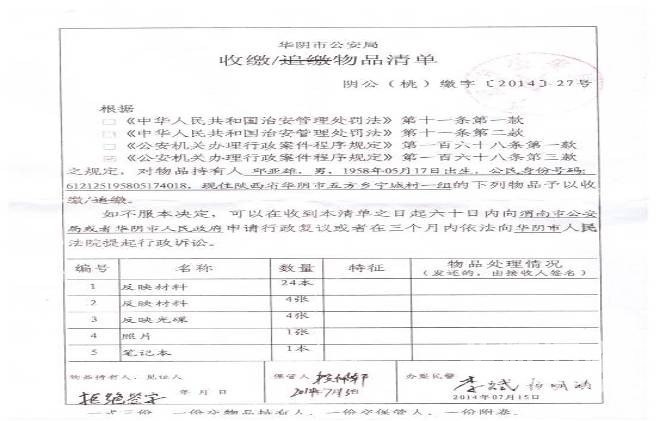 华阴市公安局
收缴/追缴物品清单
阴公（桃）缴字〔2014〕27号
根据
□《中华人民共和国治安管理处罚法》第十一条第一款
□《中华人民共和国治安管理处罚法》第十一条第二款
□《公安机关办理行政案件程序规定》第一百六十八条第一款
《公安机关办理行政案件程序规定》第一百六十八条第三款
之规定，对物品持有人 邱亚雄，男，1958年05月17日出生，公民身份号码：
612125195805174018，现住陕西省华阴市五方乡宁城村一组的下列物品予以收
缴/追缴。
如不服本决定，可以在收到本清单之日起六十日内向渭南市公安
局或者华阴市人民政府申请行政复议或者在三个月内依法向华阴市人民
法院提起行政诉讼。
编号 名称 数量 特征 物品处理情况
（发还的，由接收人签名）
1 反映材料 24本
2 反映材料 4张
3 反映光碟 4张
4 照片 1张
5 笔记本 1本
物品持有人、见证人 保管人 办案民警
拒绝签字 年 月 日 2014年7月15日 李斌
2014年07月15日
一式三份，一份交物品持有人，一份交保管人，一份附卷。